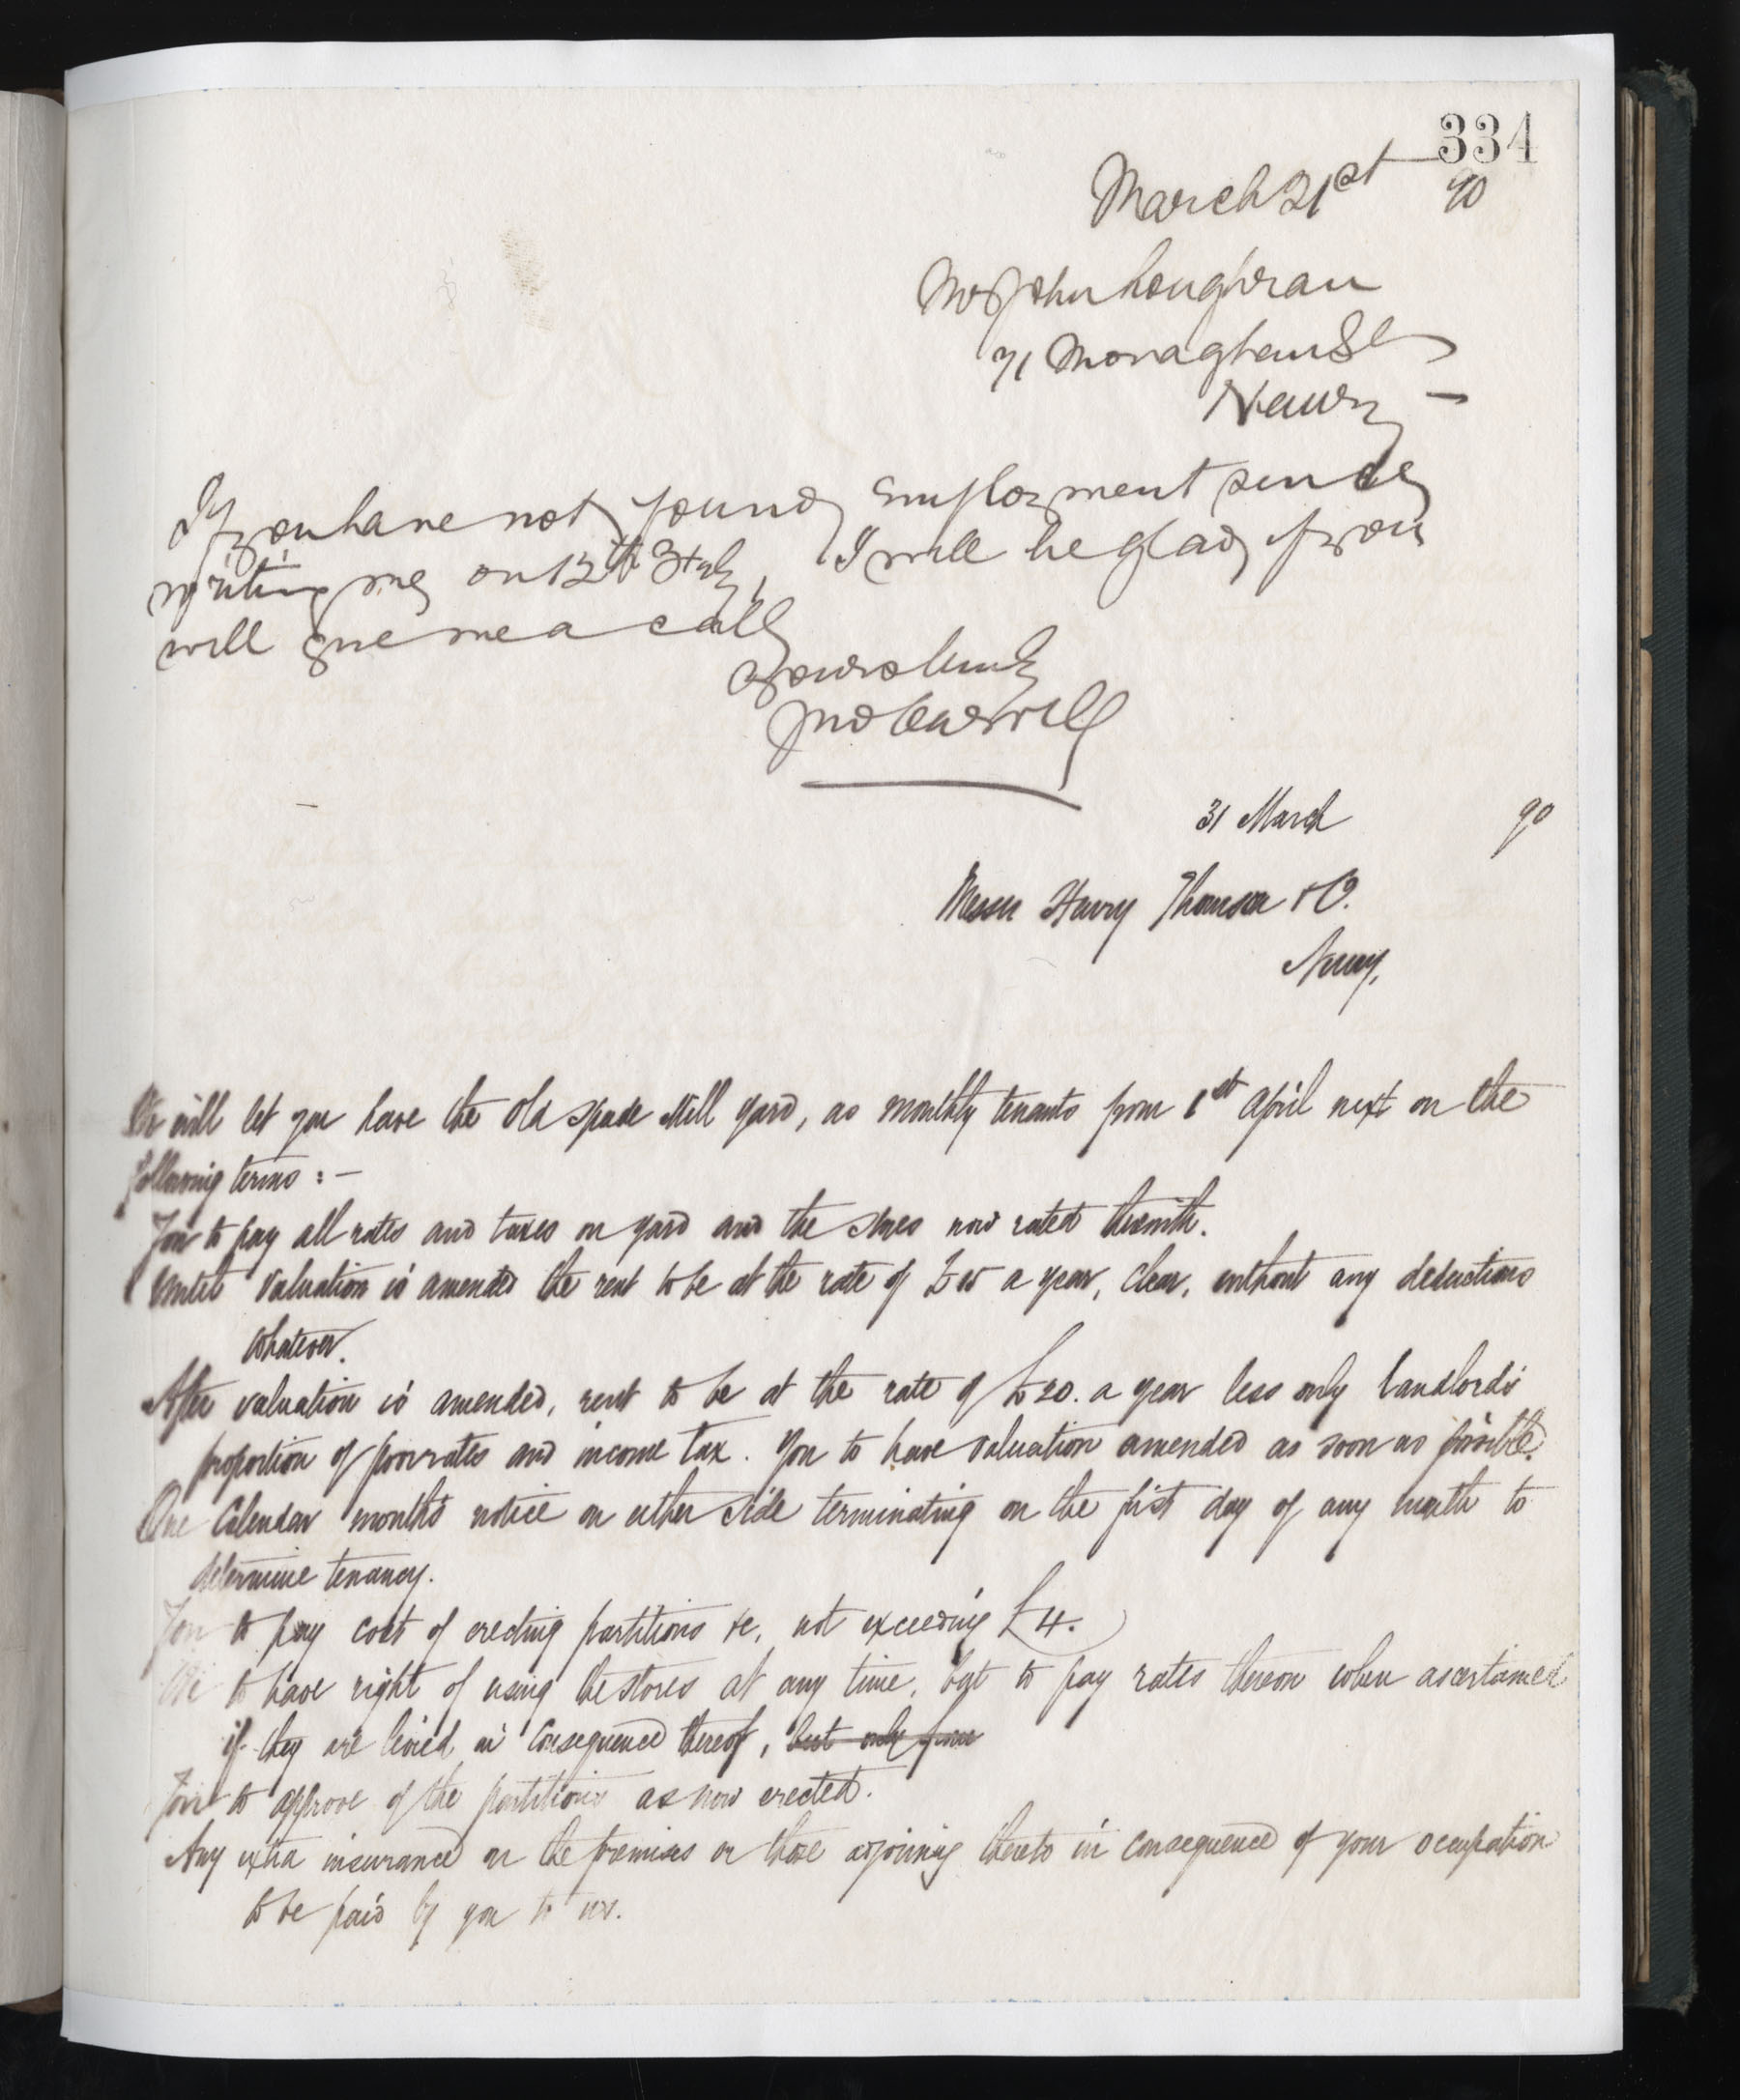 334
March 21st 90
Mr John Loughran
71 Monaghan St
Newry
If you have not found employment since
writing me on 12th I will be glad if you
will give me a call
Yours truly
Jno Carvill
31 March 90
Messrs Henry Thomson & Co.
Newry,
We will let you have the old spade Mill yard, as monthly tenants from 1st April next on the
following terms :-
You to pay all rates and taxes on yard and the stores now rated therewith.
Until valuation is amended the rent to be at the rate of £ a year, clear, without any deductions
whatever.
After valuation is amended, rent to be at the rate of £20. a year less only landlord's
proportion of poor rates and income tax. You to have valuation amended as soon as possible.
One Calendar month's notice on either side terminating on the first day of any month to
determine tenancy.
You to pay cost of erecting partitions &c, not exceeding £4.
We to have right of using the stores at any time, but to pay rates thereon when ascertained
if they are levied in consequence thereof, but only
You to approve of the partitions as now erected.
Any extra insurance on the premises or those adjoining thereto in consequence of your occupation
to be paid by you to us.